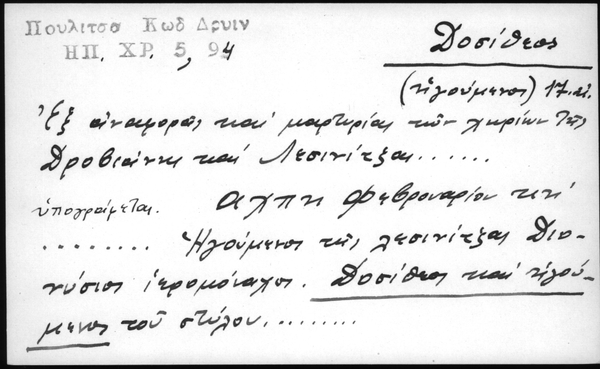 Πουλιτσα Κωδ Δρυιν
ΗΠ. ΧΡ. 5, 94
Δοσίθεος
(ἡγούμενος) 17.αἰ.
Ἐξ ἀναφορᾶς καί μαρτυρίας τῶν χωρίων τῆς
Δροβιάνης καί Λεσινίτζας......
ὑπογράφεται. αχπη Φεβρουαρίου κεʹ
........ Ἡγούμενος τῆς Λεσινίτζας Διο-
νύσιος ἱερομόναχος. Δοσίθεος καί ἡγού-
μενος τοῦ στύλου.........